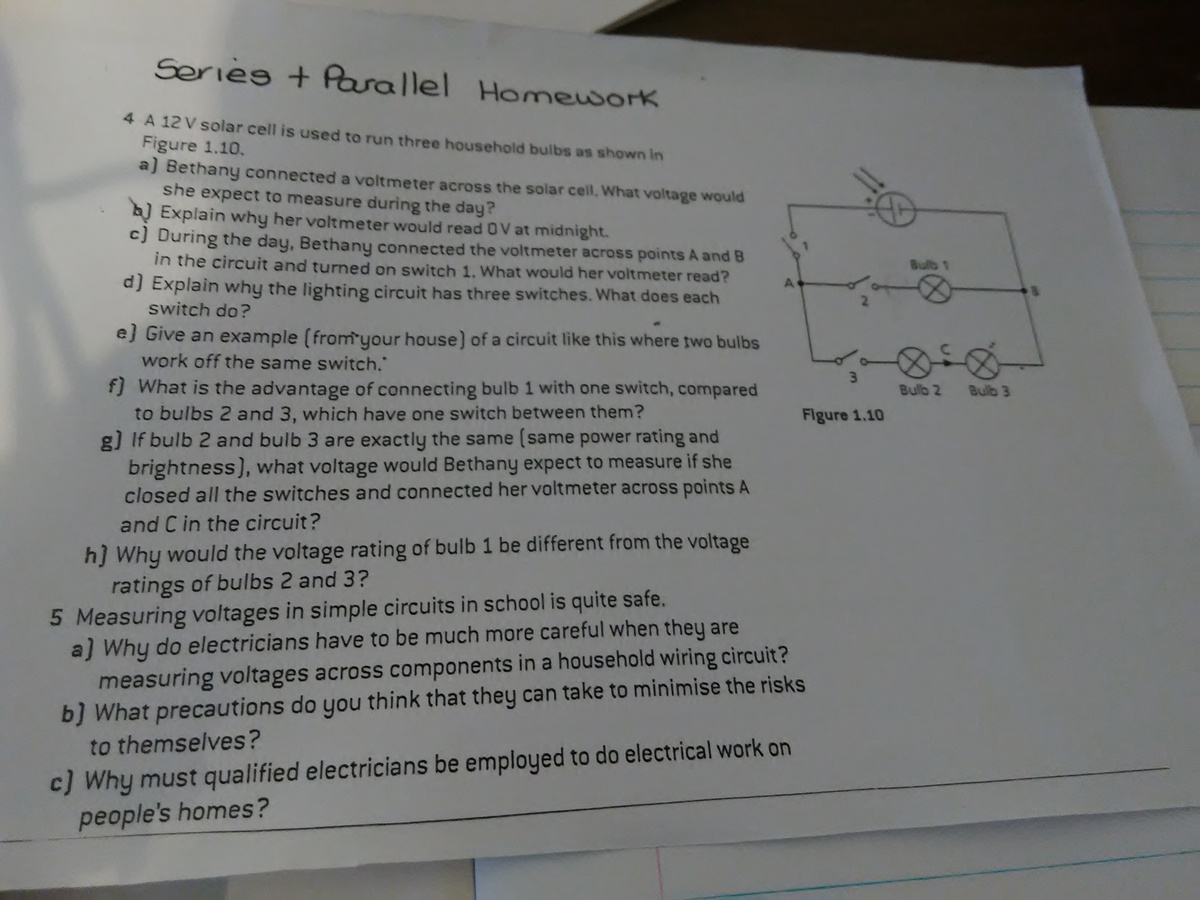 Series + Parallel Homework
4 A 12 V solar cell is used to run three household bulbs as shown in
Figure 1.10.
a) Bethany connected a voltmeter across the solar cell. What voltage would
she expect to measure during the day?
b) Explain why her voltmeter would read 0 V at midnight.
c) During the day, Bethany connected the voltmeter across points A and B
in the circuit and turned on switch 1. What would her voltmeter read?
d) Explain why the lighting circuit has three switches. What does each
switch do?
e) Give an example (from your house) of a circuit like this where two bulbs
work off the same switch.
f) What is the advantage of connecting bulb 1 with one switch, compared
to bulbs 2 and 3, which have one switch between them?
g) If bulb 2 and bulb 3 are exactly the same (same power rating and
brightness), what voltage would Bethany expect to measure if she
closed all the switches and connected her voltmeter across points A
and C in the circuit?
h) Why would the voltage rating of bulb 1 be different from the voltage
ratings of bulbs 2 and 3?
5 Measuring voltages in simple circuits in school is quite safe.
a) Why do electricians have to be much more careful when they are
measuring voltages across components in a household wiring circuit?
b) What precautions do you think that they can take to minimise the risks
to themselves?
c) Why must qualified electricians be employed to do electrical work on
people's homes?
+ -
1
Bulb 1
A B
2
C
3
Bulb 2 Bulb 3
Figure 1.10